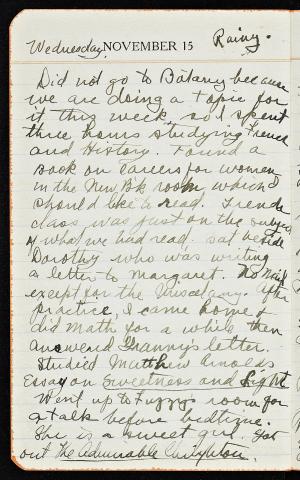 Wednesday NOVEMBER 15 Rainy.
Did not go to Botany because
we are doing a topic for
it this week, so I spent
three hours studying French
and History. Found a
book on Careers for women
in the New Bk room, which I
should like to read. French
class was just on the subject
of what we had read. Sat beside
Dorothy who was writing
a letter to Margaret. No mail
except for the Miscelany. After
practice, I came home &
did Math for a while then
answered Granny's letter.
Studied Matthew Arnold's
Essay on Sweetness and Light
Went up to Fuzzy's room for
a talk before bedtime.
She is a sweet girl. Got
out The Admirable Crichton.